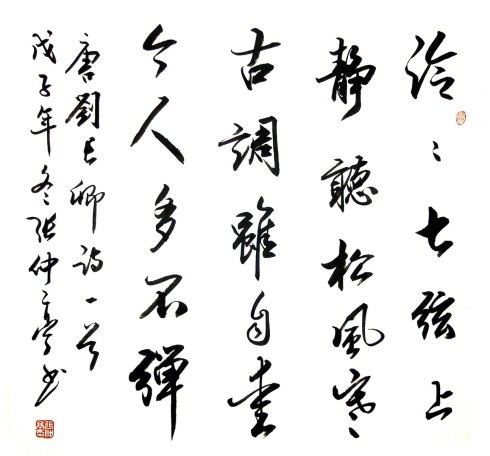 泠〻七弦上
静聽松風寒
古調雖自愛
今人多不彈
唐劉長卿詩一首
戊子年冬張仲亭書